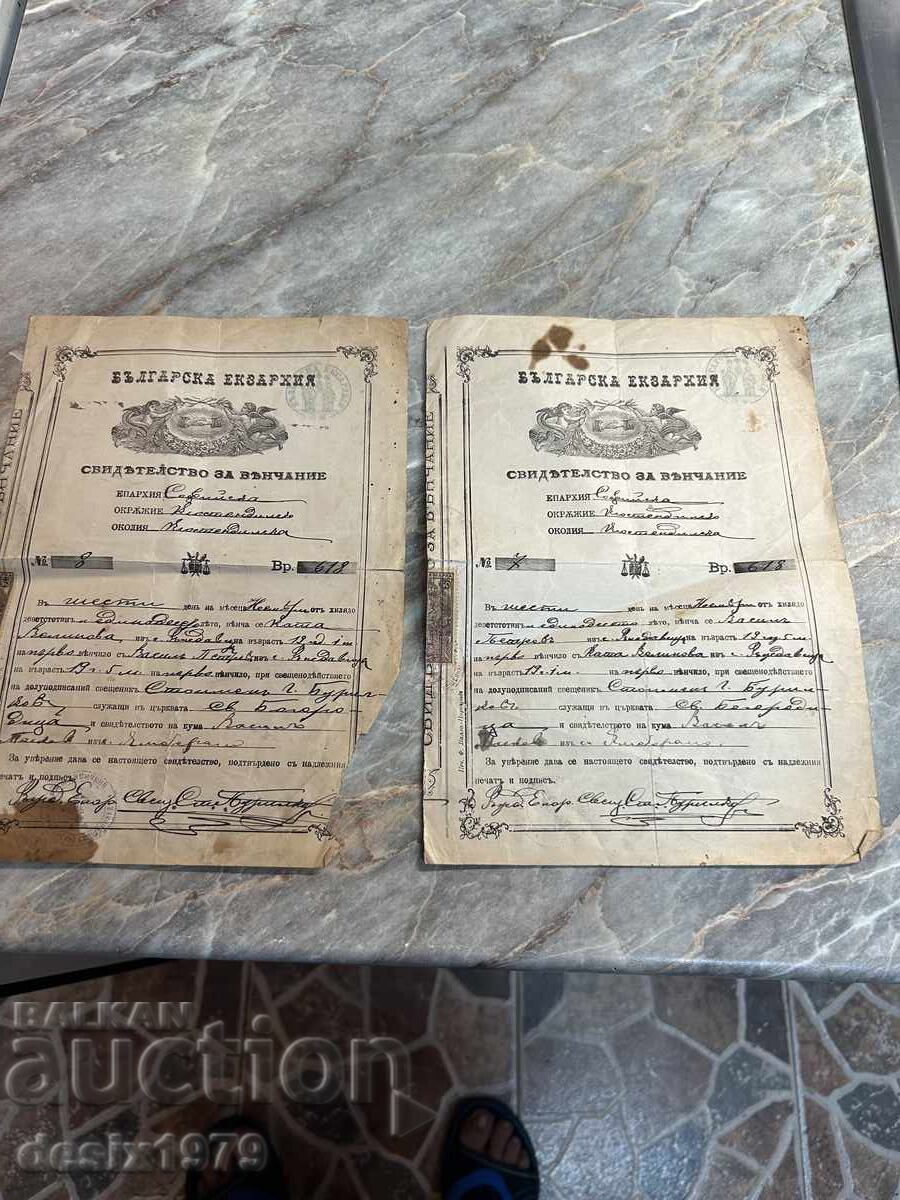 БЪЛГАРСКА ЕКЗАРХИЯ
СВИДѢТЕЛСТВО ЗА ВѢНЧАНИЕ
ЕПАРХИЯ Софийска
ОКРѪЖИЕ Кюстендилско
ОКОЛИЯ Кюстендилска
№ 8 Вр. 618
Въ шести день на мѣсецъ Ноемврий отъ хилядо
деветстотинъ и единадесето лѣто, вѣнча се Ката
Великова, изъ с. на възрастъ 19 год 1 м
на първо вѣнчило съ Василъ Петровъ изъ с.
на възрастъ 19 г. 5 м на първо вѣнчило, при свещенодѣйствието
на долуподписаний свещеникъ Стоименъ Г.
служащи въ църквата Св. Богоро-
дица и свидѣтелството на кума
изъ
За увѣрание дава се настоящето свидѣтелство, подтвърдено съ надлежния
печатъ и подписъ.
Енор. Свещ. Сто.
БЪЛГАРСКА ЕКЗАРХИЯ
СВИДѢТЕЛСТВО ЗА ВѢНЧАНИЕ
ЕПАРХИЯ Софийска
ОКРѪЖИЕ Кюстендилско
ОКОЛИЯ Кюстендилска
№ 7 Вр. 618
Въ шести день на мѣсецъ Ноемврий отъ хилядо
деветстотинъ и единадесето лѣто, вѣнча се Василъ
Петровъ изъ с. на възрастъ 19 год 5 м
на първо вѣнчило съ Ката Великова изъ с.
на възрастъ 19 г. 1 м. на първо вѣнчило, при свещенодѣйствието
на долуподписаний свещеникъ Стоименъ Г.
служащи въ църквата Св. Богороди-
ца и свидѣтелството на кума
изъ с.
За увѣрание дава се настоящето свидѣтелство, подтвърдено съ надлежния
печатъ и подписъ.
Енор. Свещ. Сто.
СВИД ЗА ВѢНЧАНИЕ
BALKAN
auction
desix1979